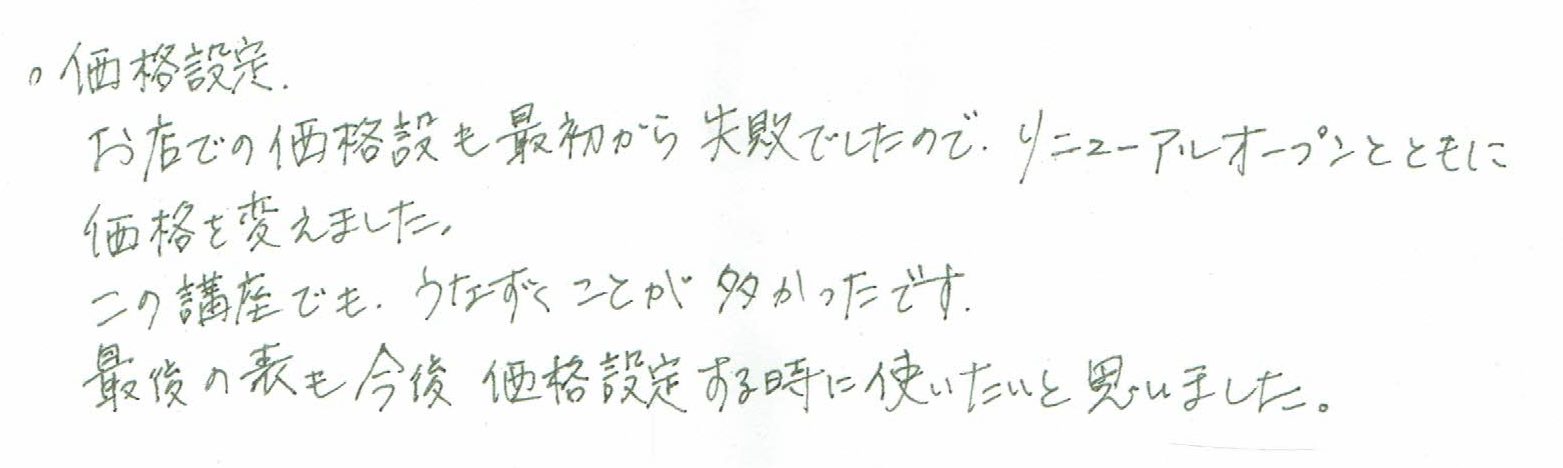 。価格設定.
お店での価格設も最初から失敗でしたので、リニューアルオープンとともに
価格を変えました。
この講座でも、うなずくことが多かったです.
最後の表も今後価格設定する時に使いたいと思いました。